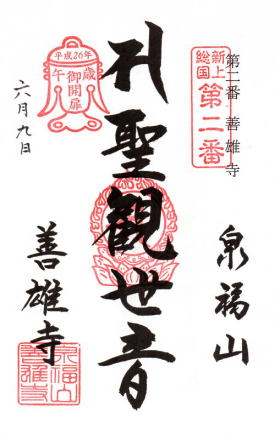 新上
総国
第二番
第二番 善雄寺
泉福山
聖観世音
平成26年
午歳
御開扉
六月九日
善雄寺
泉福山
善雄寺